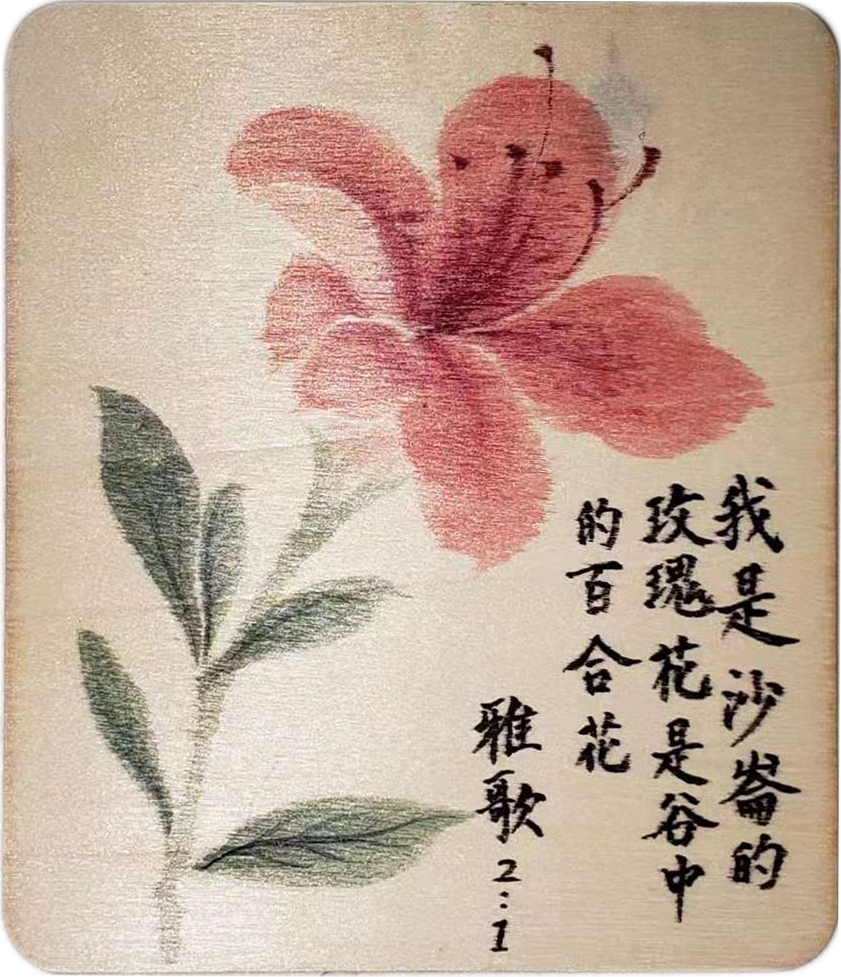 我是沙崙的
玫瑰花是谷中
的百合花
雅歌2:1